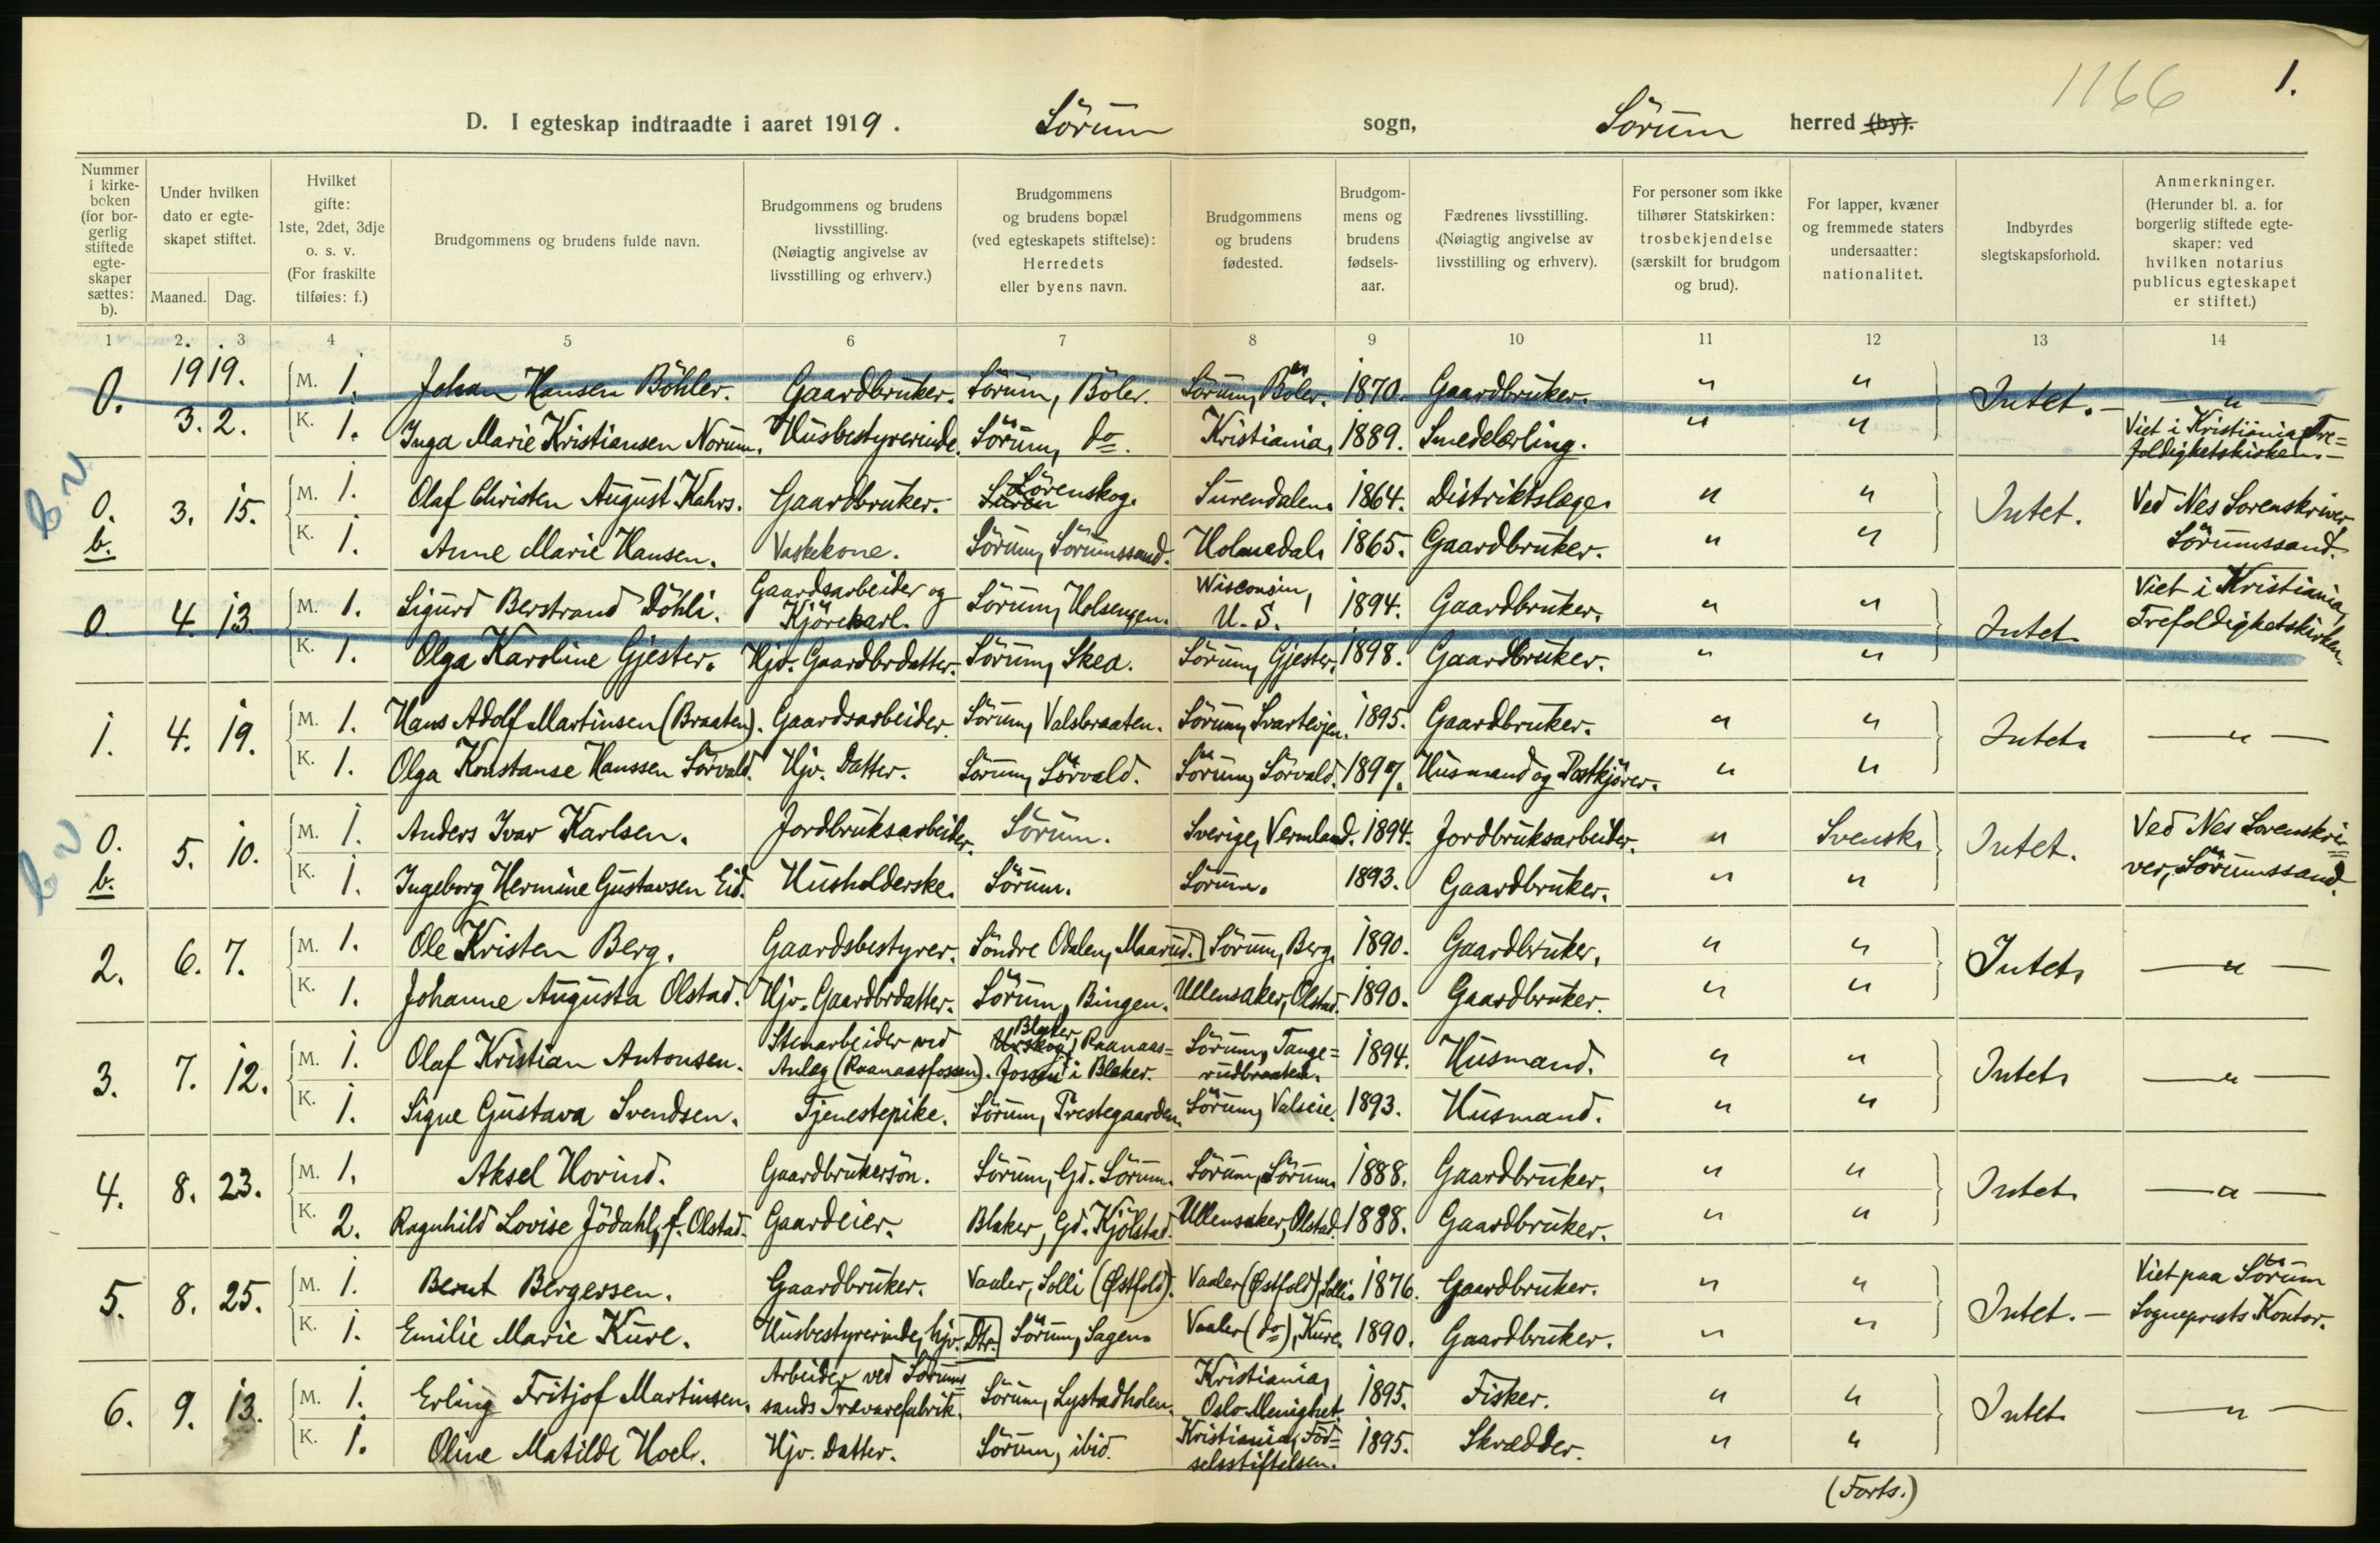 1166
1.
D. I egteskap indtraadte i aaret 1919. Sörum sogn, Sörum herred (by).
Nummer i kirke-boken (for bor-gerlig stiftede egte-skaper sættes: b).
Under hvilken dato er egte-skapet stiftet.
Maaned. Dag.
Hvilket gifte: 1ste, 2det, 3dje o. s. v. (For fraskilte tilføies: f.)
Brudgommens og brudens fulde navn.
Brudgommens og brudens livsstilling. (Nøiagtig angivelse av livsstilling og erhverv.)
Brudgommens og brudens bopæl (ved egteskapets stiftelse): Herredets eller byens navn.
Brudgommens og brudens fødested.
Brudgom-mens og brudens fødsels-aar.
Fædrenes livsstilling. (Nøiagtig angivelse av livsstilling og erhverv).
For personer som ikke tilhører Statskirken: trosbekjendelse (særskilt for brudgom og brud).
For lapper, kvæner og fremmede staters undersaatter: nationalitet.
Indbyrdes slegtskapsforhold.
Anmerkninger. (Herunder bl. a. for borgerlig stiftede egte-skaper: ved hvilken notarius publicus egteskapet er stiftet.)
1 2. 3 4 5 6 7 8 9 10 11 12 13 14
1919.
0. M. 1. Johan Hansen Böhler. Gaardbruker. Sörum, Böler. Sörum, Böler. 1870. Gaardbruker. " " Intet. — " —
3. 2. K. 1. Inga Marie Kristiansen Norum. Husbestyrerinde. Sörum, do. Kristiania, 1889. Smedelærling. " " Viet i Kristiania, Tre=
foldighetskirken.—
0. 3. 15. M. 1. Olaf Christen August Kahrs. Gaardbruker. Sörenskog. Surendalen. 1864. Distriktslæge. " " Intet. Ved Nes Sorenskriver
b. K. 1. Anne Marie Hansen. Vaskekone. Sörum, Sörumssand. Holmedal. 1865. Gaardbruker. " " Sörumssand.
0. 4. 13. M. 1. Sigurd Berstrand Döhli. Gaardsarbeider og Kjörekarl. Sörum, Holsengen. Wisconsin, U. S. 1894. Gaardbruker. " " Intet. Viet i Kristiania,
K. 1. Olga Karoline Gjester. Hjv. Gaardbrdatter. Sörum, Skea. Sörum, Gjester. 1898. Gaardbruker. " " Trefoldighetskirken.
1. 4. 19. M. 1. Hans Adolf Martinsen (Braaten). Gaardsarbeider. Sörum, Valsbraaten. Sörum, Svartevjen. 1895. Gaardbruker. " " Intet. — " —
K. 1. Olga Konstanse Hanssen Sörvald. Hjv. Datter. Sörum, Sörvald. Sörum, Sörvald. 1897. Husmand og Postkjörer. " "
0. 5. 10. M. 1. Anders Ivar Karlsen. Jordbruksarbeider. Sörum. Sverige, Vermland. 1894. Jordbruksarbeider. " Svensk. Intet. Ved Nes Sorenskri=
b. K. 1. Ingeborg Hermine Gustavsen Eid. Husholderske. Sörum. Sörum. 1893. Gaardbruker. " " ver, Sörumssand.
2. 6. 7. M. 1. Ole Kristen Berg. Gaardsbestyrer. Söndre Odalen, Maarud. Sörum, Berg. 1890. Gaardbruker. " " Intet. — " —
K. 1. Johanne Augusta Olstad. Hjv. Gaardbrdatter. Sörum, Bingen. Ullensaker, Olstad. 1890. Gaardbruker. " "
3. 7. 12. M. 1. Olaf Kristian Antonsen. Stenarbeider ved Anlæg (Raanaasfossen). Urskog, Blaker, Raanaas=fossen i Blaker. Sörum, Tange=rudbraaten. 1894. Husmand. " " Intet. — " —
K. 1. Signe Gustava Svendsen. Tjenestepike. Sörum, Prestegaarden. Sörum, Valseie. 1893. Husmand. " "
4. 8. 23. M. 1. Aksel Hovind. Gaardbrukersön. Sörum, Gd. Sörum. Sörum, Sörum. 1888. Gaardbruker. " " Intet. — " —
K. 2. Ragnhild Lovise Jödahl, f. Olstad. Gaardeier. Blaker, Gd. Kjölstad. Ullensaker, Olstad. 1888. Gaardbruker. " "
5. 8. 25. M. 1. Bernt Bergersen. Gaardbruker. Vaaler, Solli (Østfold). Vaaler (Østfold), Solli. 1876. Gaardbruker. " " Intet. — Viet paa Sörum
K. 1. Emilie Marie Kure. Husbestyrerinde, hjv. Dtr. Sörum, Sagen. Vaaler (do), Kure. 1890. Gaardbruker. " " Sogneprests Kontor.
6. 9. 13. M. 1. Erling Fritjof Martinsen. Arbeider ved Sörums=sands Trævarefabrik. Sörum, Lystadholen. Kristiania, Oslo Menighet. 1895. Fisker. " " Intet. — " —
K. 1. Oline Matilde Hoel. Hjv. Datter. Sörum, ibid. Kristiania, Föd=selsstiftelsen. 1895. Skrædder. " "
(Forts.)